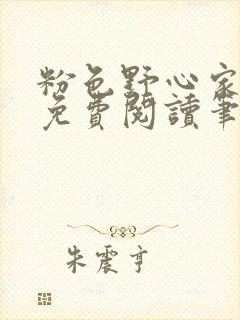 粉色野心家
免費閱讀筆
朱震亨